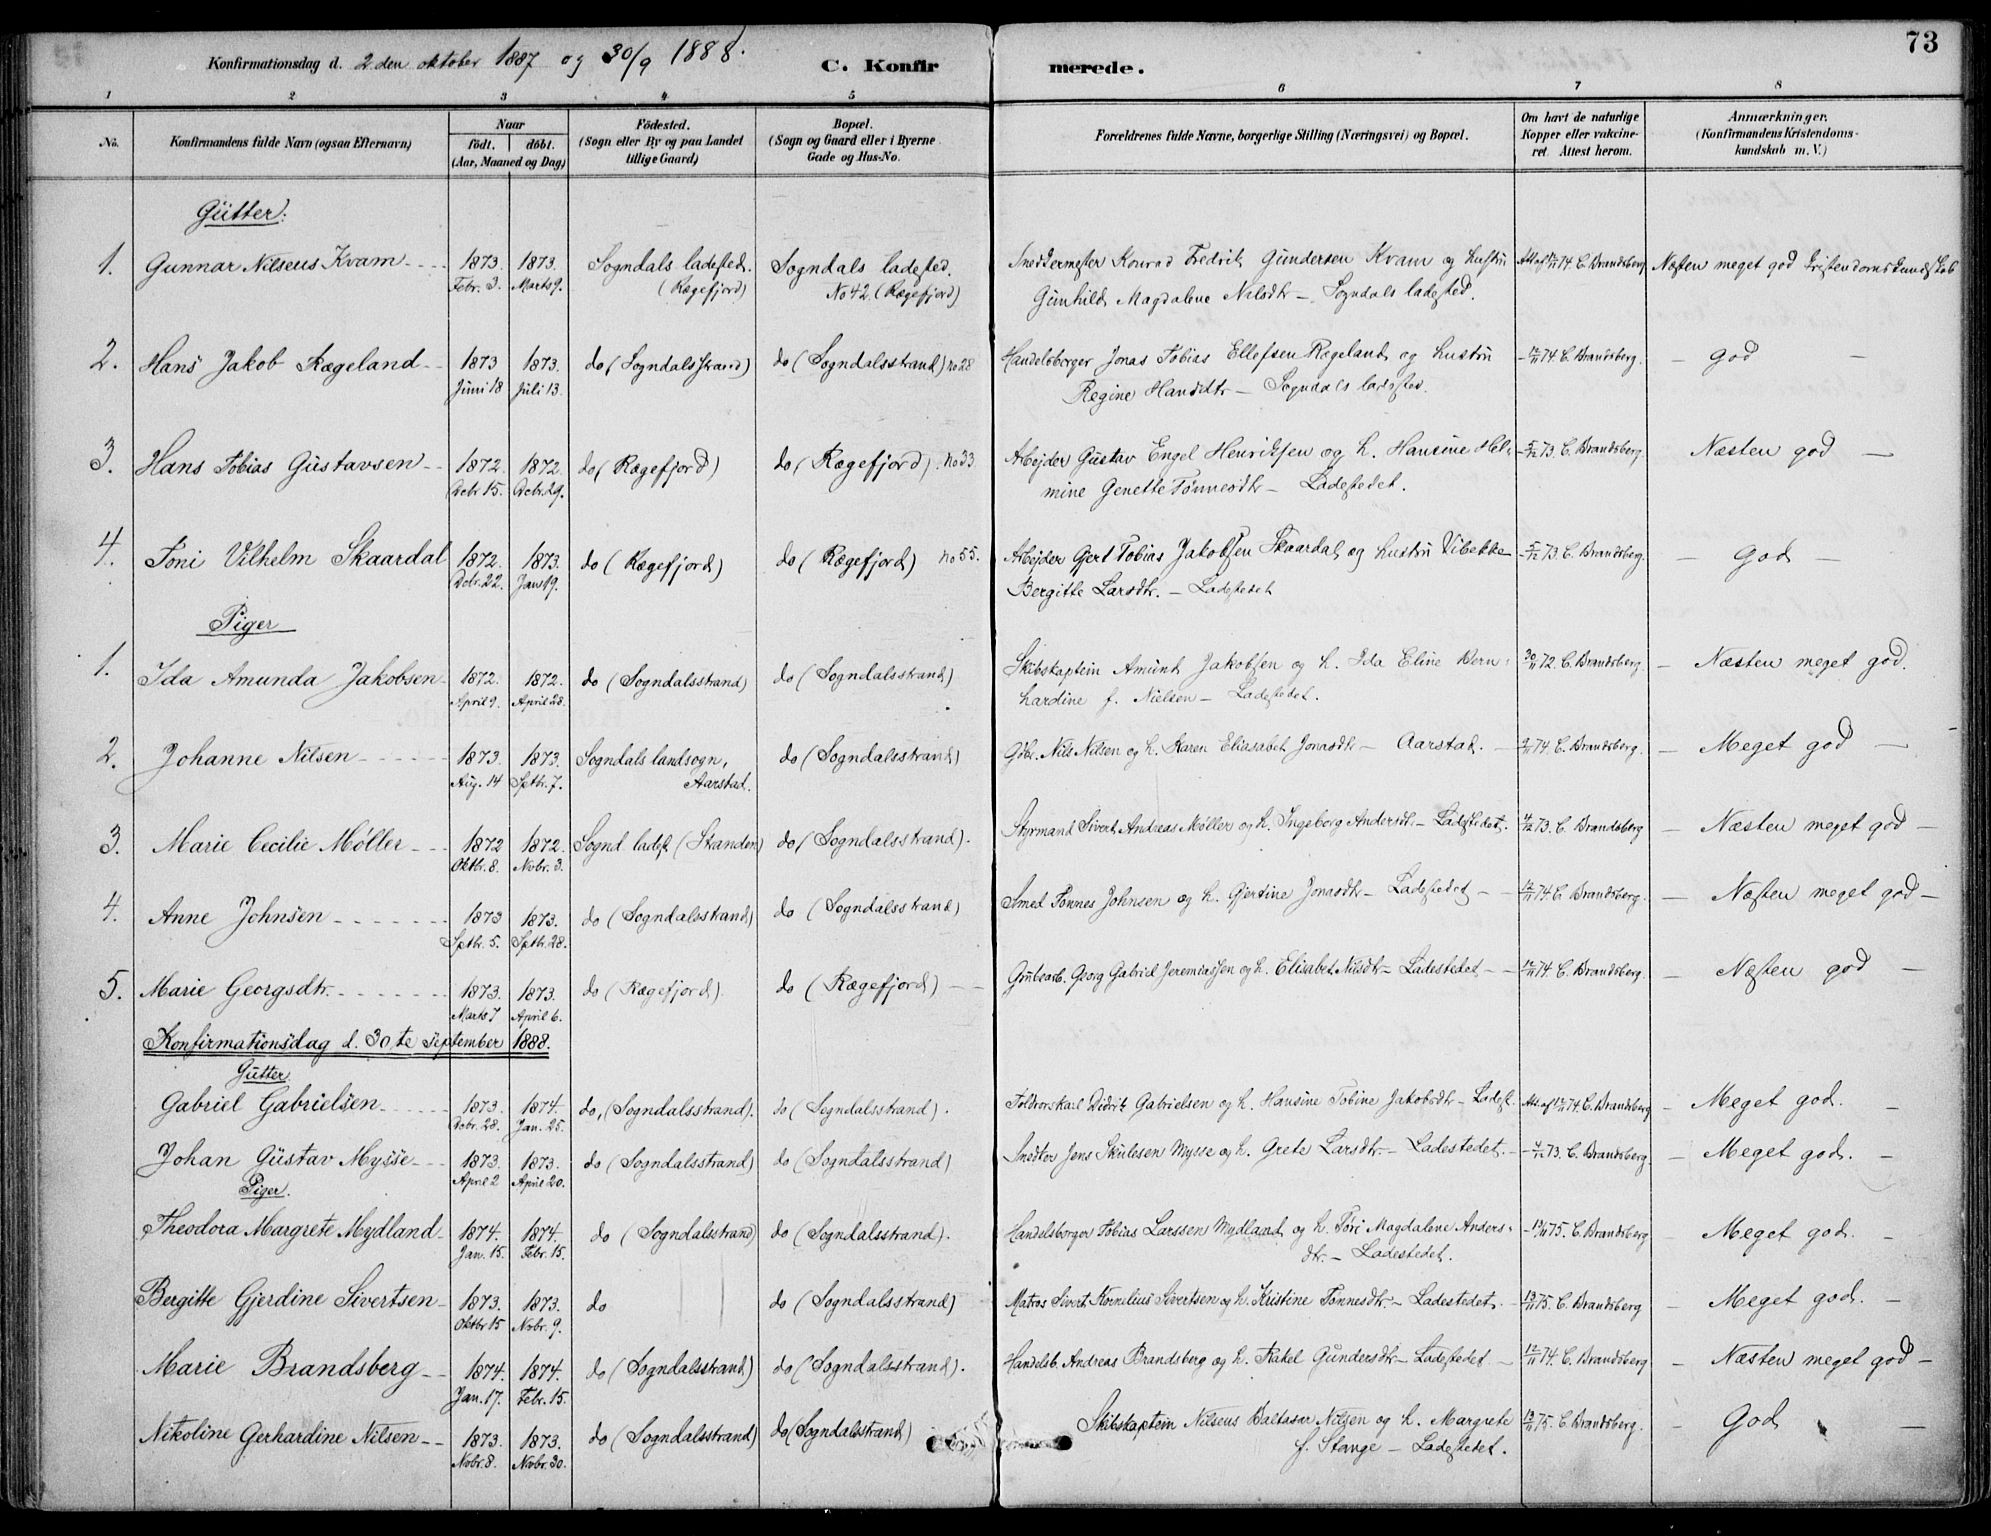 73
Konfirmationsdag d. 2den oktober 1887 og 30/9 1888.
C. Konfirmerede.
1 2 3 4 5 6 7 8
No. Konfirmandens fulde Navn (ogsaa Efternavn) Naar födt. döbt. (Aar, Maaned og Dag)
Födested. (Sogn eller By og paa Landet tillige Gaard)
Bopæl. (Sogn og Gaard eller i Byerne Gade og Hus-No.
Forældrenes fulde Navne, borgerlige Stilling (Næringsvei) og Bopæl.
Om havt de naturlige Kopper eller vakcineret. Attest herom.
Anmærkninger. (Konfirmandens Kristendomskundskab m. V.)
Gütter:
1. Gunnar Nilseus Kvam 1873. 1873. Sogndals ladested. Sogndals ladested. Snedkermester Konrad Fredrik Gundersen Kvam og hustru Att. af 12/11 74 C. Brandsberg Næsten meget god Kristendomskundskab
Febr. 3. Marts 9. (Rægefjord) No 42. (Rægefjord) Gunhild Magdalene Nilsdtr — Sogndals ladested.
2. Hans Jakob Rægeland 1873 1873. do (Sogndalsstrand) do (Sogndalsstrand) no 28 Handelsborger Jonas Tobias Ellefsen Rægeland og hustru — 12/11 74 C. Brandsberg. — god —
Juni 18 Juli 13. Regine Hansdtr — Sogndals ladested.
3. Hans Tobias Güstavsen 1872. 1872. do (Rægefjord) do (Rægefjord). no 33 Arbejder Güstav Engel Henriksen og h. Hansine Hel- — 5/12 73. C. Brandsberg. Næsten god —
Dcbr. 15. Dcbr. 29. mine Genette Tønnesdtr — Ladestedet.
4. Toni Vilhelm Skaardal 1872. 1873. do (Rægefjord) do (Rægefjord) no 55. Arbejder Gjert Tobias Jakobsen Skaardal og hustru Vibekke — 5/12 73. C. Brandsberg. — God —
Dcbr. 22. Jan. 19. Bergitte Larsdtr. — Ladestedet
Piger
1. Ida Amunda Jakobsen 1872. 1872. do (Sogndalsstrand) do (Sogndalsstrand) Skibskaptein Amünt Jakobsen og h. Ida Eline Bern- 30/11 72. C. Brandsberg. — Næsten meget god.
April 9. April 28. hardine f. Nielsen — Ladestedet.
2. Johanne Nilsen 1873 1873. Sogndals landsogn, do (Sogndalsstrand) Gdbr. Nils Nilsen og h. Karen Eliasabet Jonasdtr — Aarstad. 74. C. Brandsberg. — Meget god —
Aug. 14 Sptbr. 7. Aarstad.
3. Marie Cecilie Møller 1872 1872. Sognd ladest (Stranden) do (Sogndalsstrand). Styrmand Sivert Andreas Møller og h. Ingeborg Andersdtr. — Ladestedet. 73. C. Brandsberg — Næsten meget god —
Oktbr. 8. Novbr. 3.
4. Anne Johnsen 1873 1873. do (Sogndalsstrand) do (Sogndalsstrand) Smed Tønnes Johnsen og h. Gjertine Jonasdtr — Ladestedet — 12/11 74 C. Brandsberg. — Næsten meget god —
Sptbr. 5. Sptbr. 28.
5. Marie Georgsdtr. 1873. 1873. do (Rægefjord). do (Rægefjord) Grubearb. Georg Gabriel Jeremiassen og h. Elisabet Nilsdtr — Ladestedet — 12/11 74 C. Brandsberg. — Næsten god —
Marts 7 April 6.
Konfirmationsdag d. 30te September 1888.
Gütter
Gabriel Gabrielsen 1873. 1874. do, (Sogndalsstrand). do (Sogndalsstrand). Toldrorskarl Didrik Gabrielsen og h. Hansine Tobine Jakobsdtr — Ladest. Att. af 12/11 74. C. Brandsberg — Meget god. —
Dcbr. 28. Jan. 25.
Johan Güstav Mysse 1873. 1873. do (Sogndalsstrand) do (Sogndalsstrand) Snedker Jens Skulesen Mysse og h. Grete Larsdtr. — Ladestedet. 73. C. Brandsberg. — Meget god. —
April 2 April 20.
Piger.
Theodora Margrete Mydland 1874. 1874. do (Sogndalsstrand) do (Sogndalsstrand). Handelsborger Tobias Larssen Mydland og h. Tori Magdalene Anders- 75. C. Brandsberg — Meget god. —
Jan. 15. Febr. 15. dtr. — Ladestedet.
Bergitte Gjerdine Sivertsen 1873. 1873. do do (Sogndalsstrand) Matros Sivert Kornelius Sivertsen og h. Kristine Tønnesdtr — Ladestedet. 13/11 75. C. Brandsberg — Meget god. —
Oktbr 15 Novbr. 9.
Marie Brandsberg 1874. 1874. do (Sogndalsstrand) do (Sogndalsstrand). Handelsb. Andreas Brandsberg og h. Rakel Gundersdtr — Ladestedet — 12/11 74. C. Brandsberg — Næsten meget god —
Jan. 17. Febr. 15.
Nikoline Gerhardine Nilsen 1873. 1873. do (Sogndalsstrand) do (Sogndalsstrand) Skibskaptein Nilseus Baltasar Nilsen og h. Margrete 13/11 75. C. Brandsberg. — God —
Novbr. 8. Novbr. 30. f. Stange — Ladestedet.